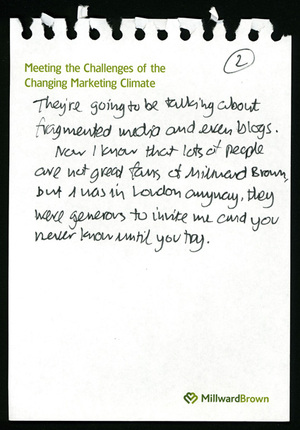 Meeting the Challenges of the
Changing Marketing Climate
2
They're going to be talking about
fragmented media and even blogs.
Now I know that lots of people
are not great fans of Milward Brown,
but I was in London anyway, they
were generous to invite me and you
never know until you try.
MillwardBrown